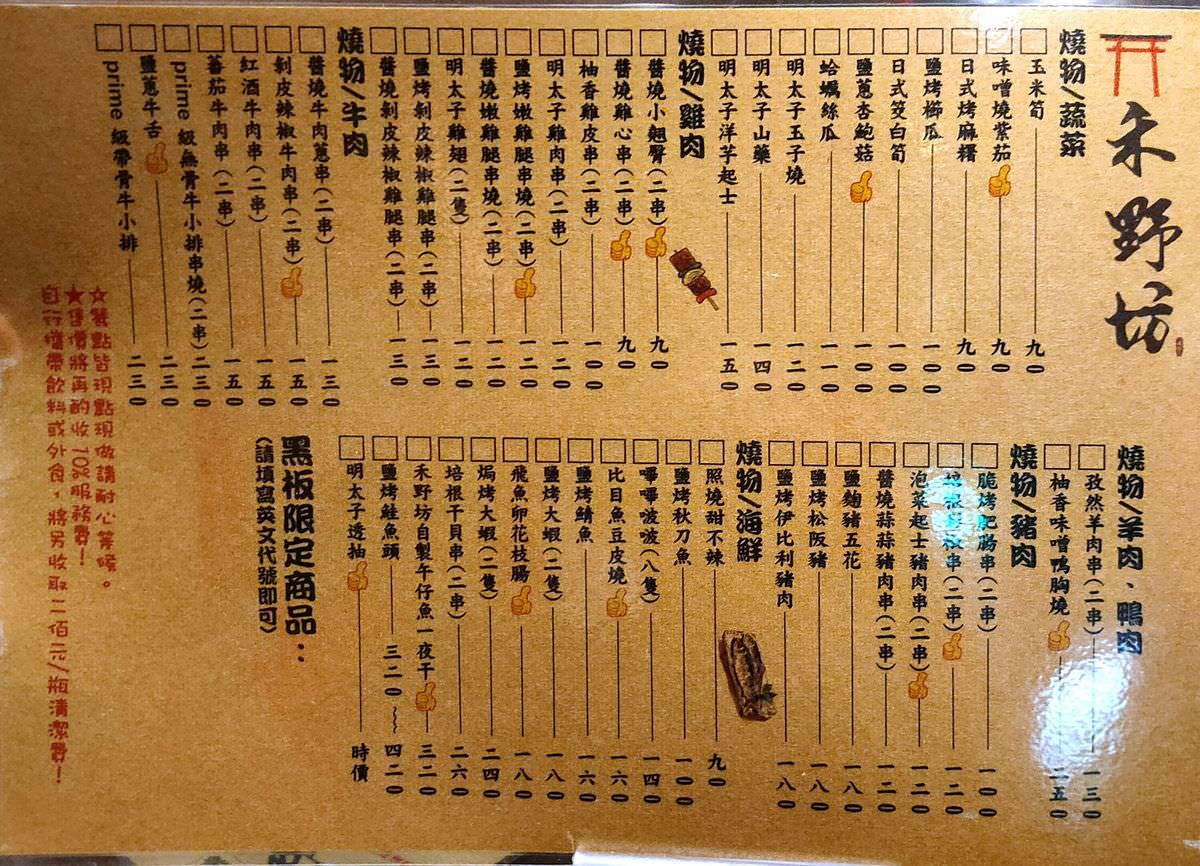 禾野坊
燒物/蔬菜
玉米筍 九〇
味噌燒紫茄 九〇
日式烤麻糬 九〇
鹽烤櫛瓜 一〇〇
日式筊白筍 一〇〇
鹽蔥杏鮑菇 一〇〇
蛤蠣絲瓜 一一〇
明太子玉子燒 一二〇
明太子山藥 一四〇
明太子洋芋起士 一五〇
燒物/雞肉
醬燒小翅臀(二串) 九〇
醬燒雞心串(二串) 九〇
柚香雞皮串(二串) 一〇〇
明太子雞肉串(二串) 一二〇
鹽烤嫩雞腿串燒(二串) 一二〇
醬燒嫩雞腿串燒(二串) 一二〇
明太子雞翅(二隻) 一二〇
鹽烤剝皮辣椒雞腿串(二串) 一三〇
醬燒剝皮辣椒雞腿串(二串) 一三〇
燒物/牛肉
醬燒牛肉蔥串(二串) 一三〇
剝皮辣椒牛肉串(二串) 一五〇
紅酒牛肉串(二串) 一五〇
蕃茄牛肉串(二串) 一五〇
prime 級無骨牛小排串燒(二串) 二三〇
鹽蔥牛舌 二三〇
prime 級帶骨牛小排 二三〇
燒物/羊肉、鴨肉
孜然羊肉串(二串) 一三〇
柚香味噌鴨胸燒 二五〇
燒物/豬肉
脆烤肥腸串(二串) 一〇〇
培根 串(二串) 一二〇
泡菜起士豬肉串(二串) 一二〇
醬燒蒜蒜豬肉串(二串) 一二〇
鹽麴豬五花 一八〇
鹽烤松阪豬 一八〇
鹽烤伊比利豬肉 一八〇
燒物/海鮮
照燒甜不辣 九〇
鹽烤秋刀魚 一〇〇
嗶嗶啵啵(八隻) 一四〇
比目魚豆皮燒 一六〇
鹽烤鯖魚 一六〇
鹽烤大蝦(二隻) 一八〇
飛魚卵花枝腸 一八〇
焗烤大蝦(二隻) 二四〇
培根干貝串(二串) 二六〇
禾野坊自製午仔魚一夜干 三二〇
鹽烤鮭魚頭 三二〇~四二〇
明太子透抽 時價
黑板限定商品：
(請填寫英文代號即可)
☆餐點皆現點現做請耐心等候。
★售價將再酌收10%服務費!
自行攜帶飲料或外食,將另收取二佰元/瓶清潔費!